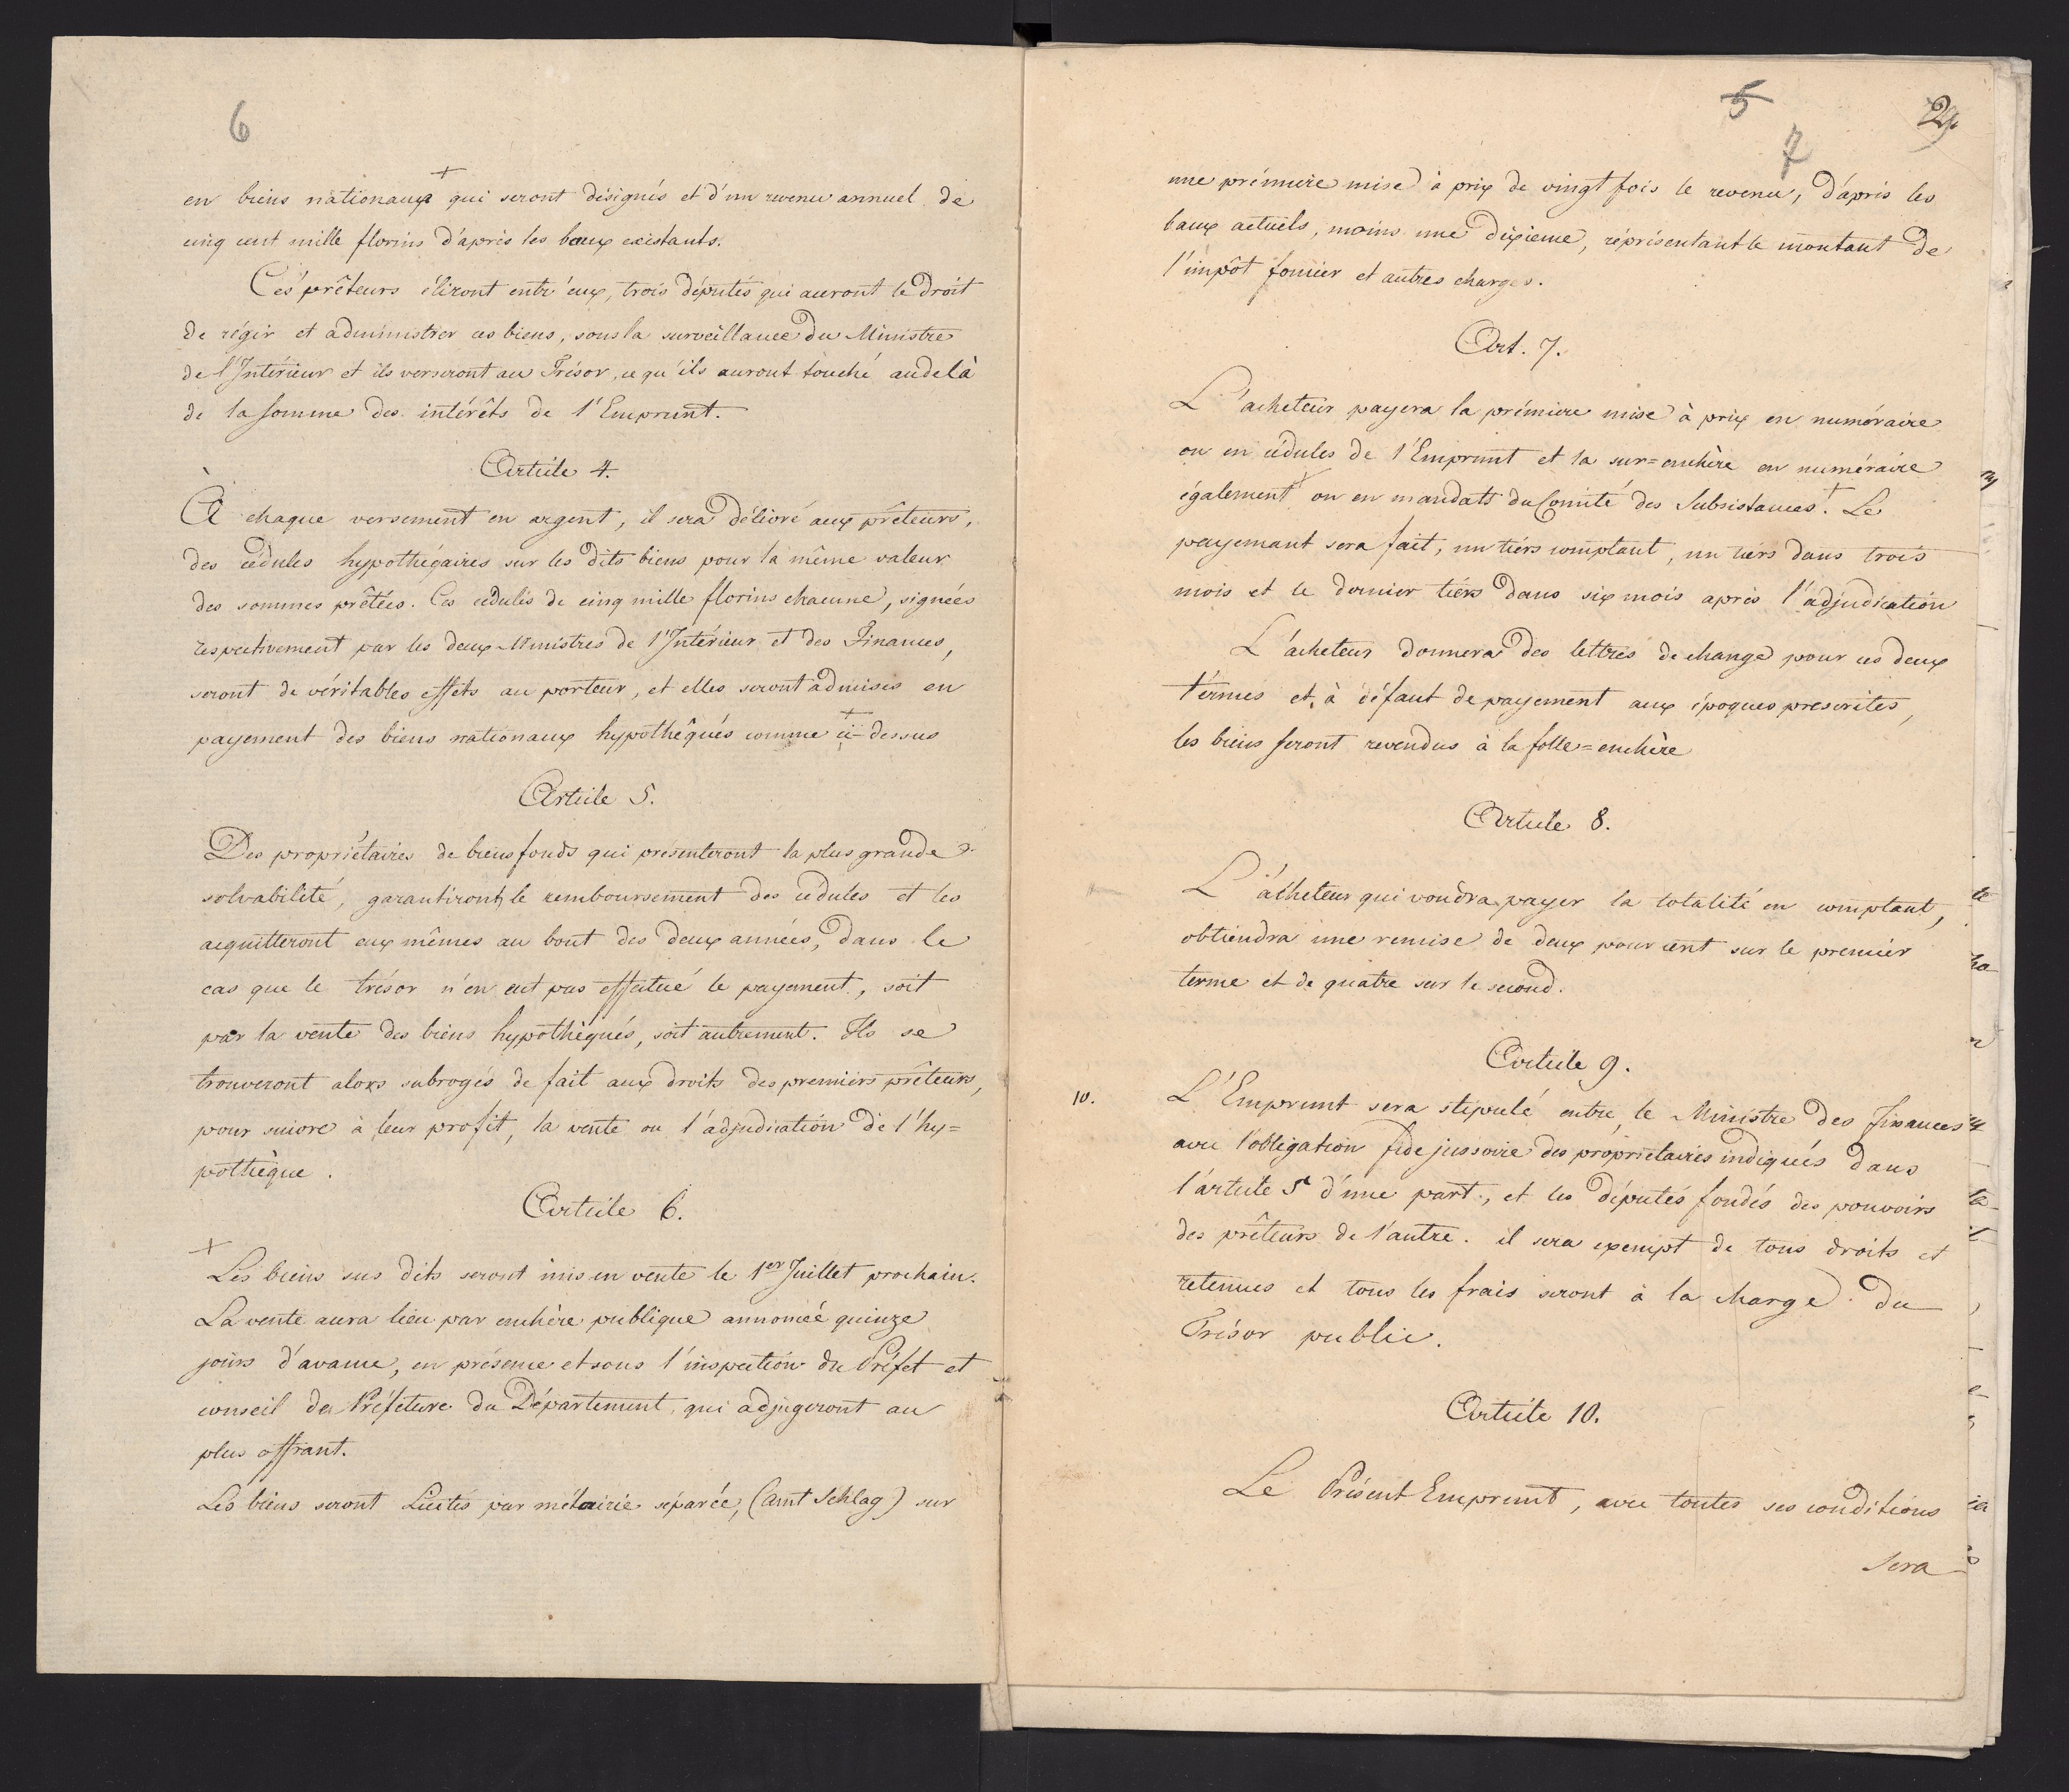 6
en biens nationaux + qui seront désignés et d'un revenu annuel de
cinq cent mille florins d'après les baux existants.
Ces prêteurs éliront entr'eux, trois députés qui auront le droit
de régir et administrer ces biens, sous la surveillance du Ministre
de l'Intérieur et ils verseront au Trésor, ce qu'ils auront touché audelà
de la somme des intérêts de l'Emprunt.
Article 4.
À chaque versement en argent, il sera délivré aux prêteurs,
des cédules hypothégaires sur les dits biens pour la même valeur
des sommes prêtées. Ces cédules de cinq mille florins chacune, signées
respectivement par les deux Ministres de l'Intérieur et des Finances,
seront de véritables effets au porteur, et elles seront admises en
payement des biens nationaux hypothêqués comme + ci-dessus
Article 5.
Des propriétaires de biens fonds qui présenteront la plus grande
solvabilité, garantiront le remboursement des cédules et les
acquitteront eux mêmes au bout des deux années, dans le
cas que le trésor n'en eut pas effectué le payement, soit
par la vente des biens hypothéqués, soit autrement. Ils se
trouveront alors subrogés de fait aux droits des premiers prêteurs,
pour suivre à leur profit, la vente ou l'adjudication de l'hy=
pothèque.
Article 6.
+
Les biens sus dits seront mis en vente le 1er Juillet prochain.
La vente aura lieu par enchère publique annoncée quinze
jours d'avance, en présence et sous l'inspection du Préfet et
conseil de Préfecture du Département, qui adjugeront au
plus offrant.
Les biens seront Licités par métairie séparée, (Amt Schlag) sur
5
29
7
une prémiere mise à prix de vingt fois le revenu, d'après les
baux actuels, moins une dixieme, réprésentant le montant de
l'impôt foncier et autres charges.
Art. 7.
L'acheteur payera la prémiere mise à prix en numéraire
ou en cédules de l'Emprunt et la sur=enchère en numéraire
également + ou en mandats du Comité des Subsistances. + Le
payemant sera fait, un tiers comptant, un tiers dans trois
mois et le dernier tiers dans six mois après l'adjudication
L'acheteur donnera des lettres de change pour ces deux
termes et, à défaut de payement aux époques prescrites,
les biens seront revendus à la folle=enchère
Article 8.
L'acheteur qui voudra payer la totalité en comptant,
obtiendra une remise de deux pour cent sur le premier
terme et de quatre sur le second.
Article 9.
10.
L'Emprunt sera stipulé entre le Ministre des Finances
avec l'obligation fidejussoire des propriétaires indiqués dans
l'article 5 d'une part, et les députés fondés des pouvoirs
des prêteurs de l'autre. il sera exempt de tous droits et
retenues et tous les frais seront à la charge du
Trésor public.
Article 10.
Le Présent Emprunt, avec toutes ses conditions
sera